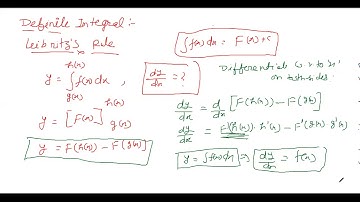 Definite Integral:-
Leibnitz's Rule
y = ∫_{g(x)}^{h(x)} f(x) dx , dy/dx = ?
y = [F(x)]_{g(x)}^{h(x)}
y = F(h(x)) - F(g(x))
∫f(x) dx = F(x) + c
Differentiate w.r. to 'x'
on both sides.
dy/dx = d/dx [F(h(x)) - F(g(x))]
dy/dx = F'(h(x)) . h'(x) - F'(g(x)) . g'(x)
y = ∫f(x) dx ⇒ dy/dx = f(x)